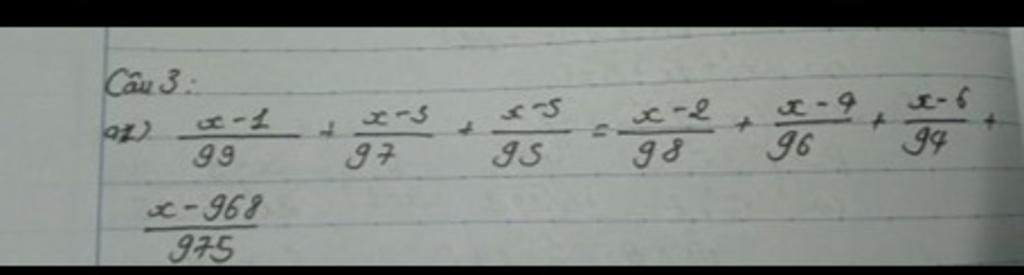 Câu 3:
a1) \frac{x-1}{99} + \frac{x-3}{97} + \frac{x-5}{95} = \frac{x-2}{98} + \frac{x-4}{96} + \frac{x-6}{94} +
\frac{x-968}{975}